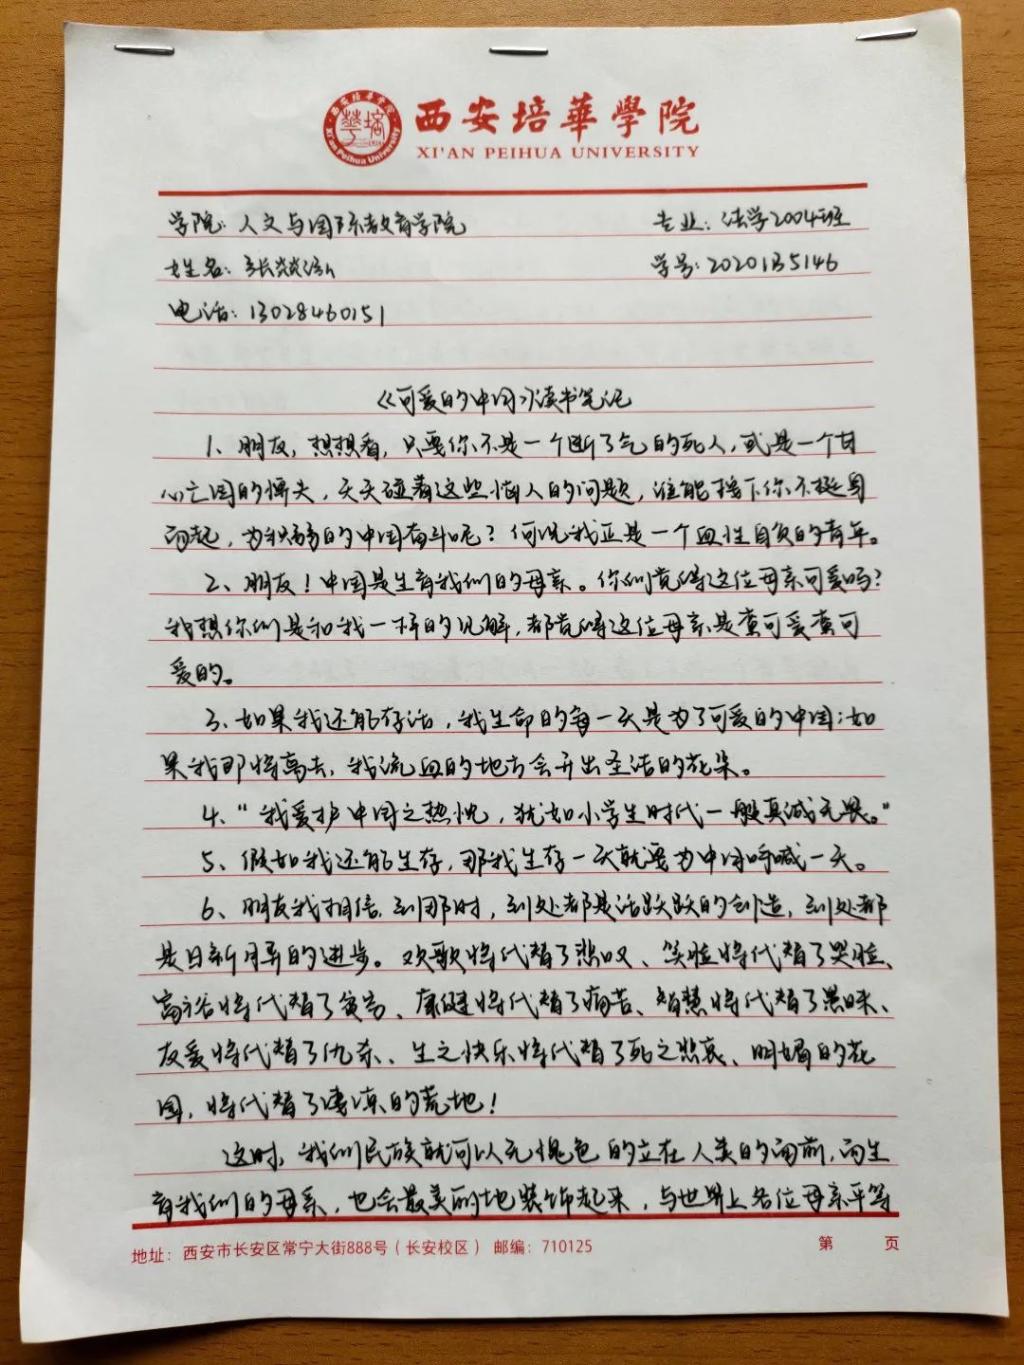 西安培華學院
XI'AN PEIHUA UNIVERSITY
学院：人文与国际教育学院 专业：法学2004班
姓名：张 学号：2020135146
电话：13028460151
《可爱的中国》读书笔记
1、朋友，想想看，只要你不是一个断了气的死人，或是一个甘
心亡国的懦夫，天天碰着这些恼人的问题，谁能按下你不挺身
而起，为积弱的中国奋斗呢？何况我正是一个血性自负的青年。
2、朋友！中国是生育我们的母亲。你们觉得这位母亲可爱吗？
我想你们是和我一样的见解，都觉得这位母亲是蛮可爱蛮可
爱的。
3、如果我还能存活，我生命的每一天是为了可爱的中国；如
果我即将离去，我流血的地方会开出圣洁的花朵。
4、“我爱护中国之热忱，犹如小学生时代一般真诚无畏。”
5、假如我还能生存，那我生存一天就要为中国呼喊一天。
6、朋友我相信，到那时，到处都是活跃跃的创造，到处都
是日新月异的进步。欢歌将代替了悲叹、笑脸将代替了哭脸、
富裕将代替了贫穷、康健将代替了痛苦、智慧将代替了愚昧、
友爱将代替了仇杀、生之快乐将代替了死之悲哀、明媚的花
园，将代替了凄凉的荒地！
这时，我们民族就可以无愧色的立在人类的面前，而生
育我们的母亲，也会最美丽地装饰起来，与世界上各位母亲平等
地址：西安市长安区常宁大街888号（长安校区） 邮编：710125 第 页